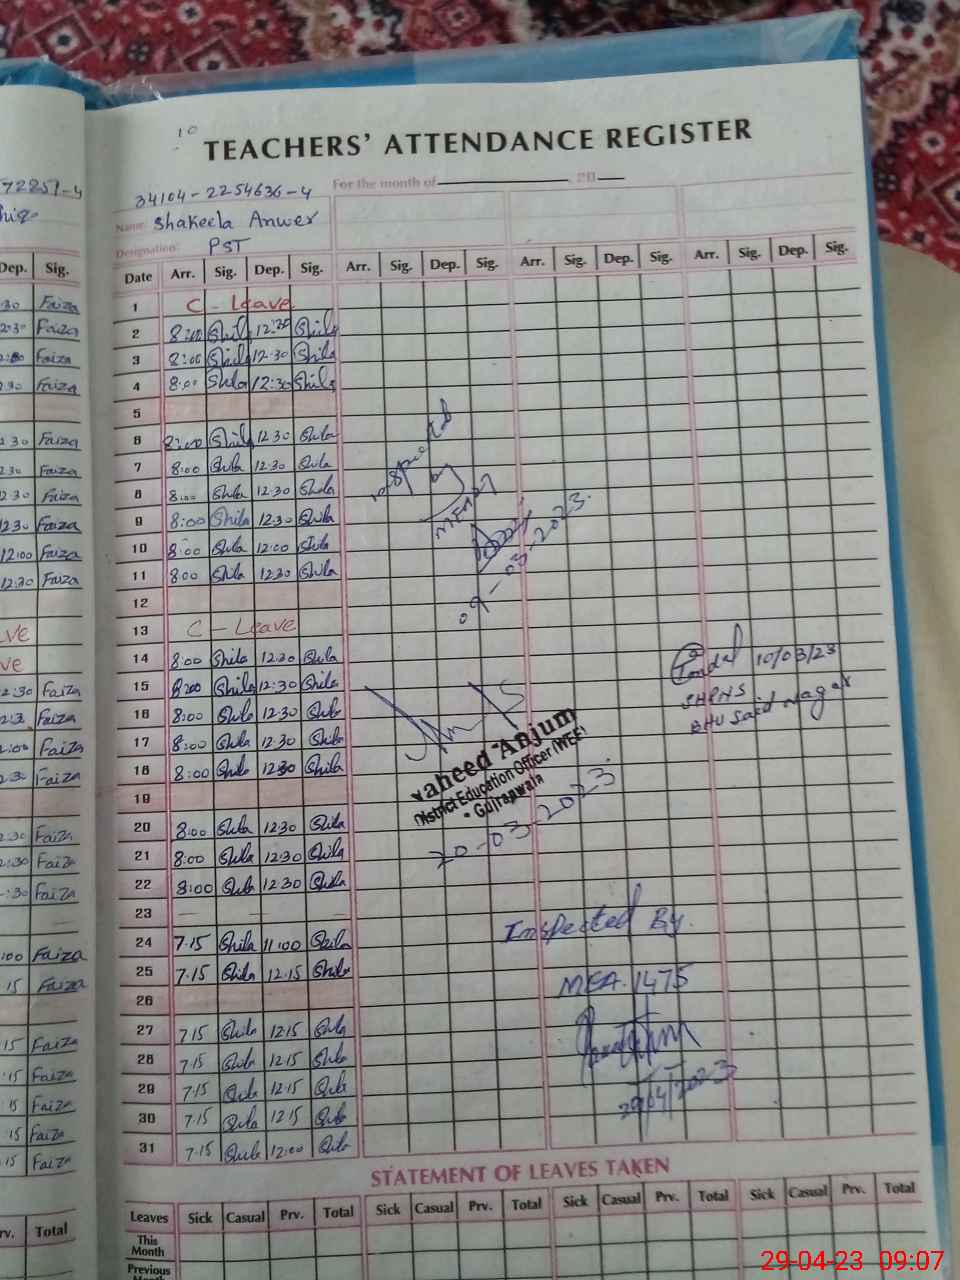 10
TEACHERS' ATTENDANCE REGISTER
72257-4
34104-2254636-4
For the month of 20
Name: Shakeela Anwer
Designation: PST
Dep. Sig.
Date Arr. Sig. Dep. Sig. Arr. Sig. Dep. Sig. Arr. Sig. Dep. Sig. Arr. Sig. Dep. Sig.
30 Faiza 1 C-Leave
2:30 Faiza 2 8:00 Shila 12:30 Shila
Faiza 3 8:00 Shila 12.30 Shila
2.30 Faiza 4 8:00 Shila 12:30 Shila
5
2 30 Faiza 6 8:00 Shila 12 30 Shila
2.30 Faiza 7 8:00 Shila 12.30 Shila
2 30 Faiza 8 8:00 Shila 12.30 Shila
12 30 Faiza 9 8:00 Shila 12.30 Shila
12:00 Faiza 10 8:00 Shila 12:00 Shila
12.30 Faiza 11 8:00 Shila 12.30 Shila
12
VE 13 C-Leave
VE 14 8:00 Shila 12.30 Shila
2:30 Faiza 15 8:00 Shila 12:30 Shila
Faiza 16 8:00 Shila 12.30 Shila
Faiza 17 8:00 Shila 12.30 Shila
Faiza 18 8:00 Shila 12.30 Shila
19
:30 Faiza 20 8:00 Shila 12.30 Shila
2:30 Faiza 21 8:00 Shila 12.30 Shila
:30 Faiza 22 8:00 Shila 12.30 Shila
23 — — —
:00 Faiza 24 7.15 Shila 11:00 Shila
15 Faiza 25 7.15 Shila 12.15 Shila
26
15 Faiza 27 7.15 Shila 12.15 Shila
15 Faiza 28 7.15 Shila 12.15 Shila
15 Faiza 29 7.15 Shila 12.15 Shila
15 Faiza 30 7.15 Shila 12.15 Shila
15 Faiza 31 7.15 Shila 12:00 Shila
Inspected
by
MEA
09-03-2023
10/03/23
SHPNS
BHU Said Nagar
aheed Anjum
District Education Officer (WEE)
Gujranwala
20-03-2023
Inspected By.
MEA.1475
29/04/2023
STATEMENT OF LEAVES TAKEN
rv. Total
Leaves Sick Casual Prv. Total Sick Casual Prv. Total Sick Casual Prv. Total Sick Casual Prv. Total
This Month
Previous
29-04-23 09:07